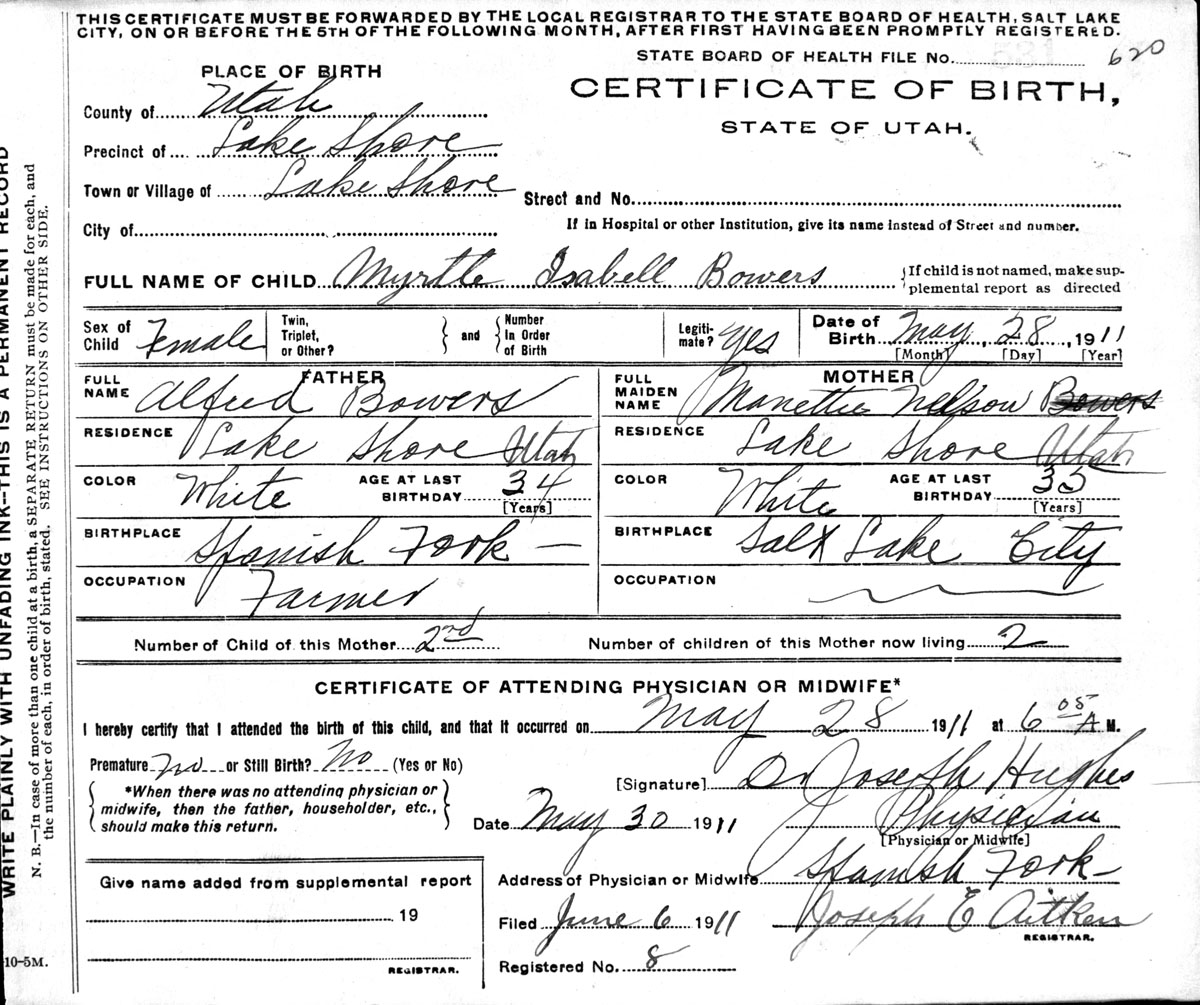 THIS CERTIFICATE MUST BE FORWARDED BY THE LOCAL REGISTRAR TO THE STATE BOARD OF HEALTH, SALT LAKE
CITY, ON OR BEFORE THE 5TH OF THE FOLLOWING MONTH, AFTER FIRST HAVING BEEN PROMPTLY REGISTERED.
STATE BOARD OF HEALTH FILE No. 620
PLACE OF BIRTH
CERTIFICATE OF BIRTH,
STATE OF UTAH.
County of Utah
Precinct of Lake Shore
Town or Village of Lake Shore
Street and No.
City of
If in Hospital or other Institution, give its name instead of Street and number.
FULL NAME OF CHILD Myrtle Isabell Bowers
If child is not named, make sup-
plemental report as directed
Sex of Child Female
Twin, Triplet, or Other?
and
Number In Order of Birth
Legiti-mate? Yes
Date of Birth May 28, 1911
[Month] [Day] [Year]
FATHER
FULL NAME Alfred Bowers
RESIDENCE Lake Shore Utah
COLOR White
AGE AT LAST BIRTHDAY 34
[Years]
BIRTHPLACE Spanish Fork —
OCCUPATION Farmer
MOTHER
FULL MAIDEN NAME Manettie Nelson Bowers
RESIDENCE Lake Shore Utah
COLOR White
AGE AT LAST BIRTHDAY
[Years]
BIRTHPLACE Salt Lake City
OCCUPATION
Number of Child of this Mother 2nd
Number of children of this Mother now living 2
CERTIFICATE OF ATTENDING PHYSICIAN OR MIDWIFE*
I hereby certify that I attended the birth of this child, and that it occurred on May 28 1911 at 6 05 A M.
Premature no or Still Birth? No (Yes or No)
*When there was no attending physician or
midwife, then the father, householder, etc.,
should make this return.
[Signature] Dr Joseph Hughes
Date May 30 1911
Physician
[Physician or Midwife]
Address of Physician or Midwife Spanish Fork —
Filed June 6 1911 Joseph E Aitken
REGISTRAR.
Registered No. 8
Give name added from supplemental report
19
REGISTRAR.
WRITE PLAINLY WITH UNFADING INK--THIS IS A PERMANENT RECORD
N. B.—In case of more than one child at a birth, a SEPARATE RETURN must be made for each, and
the number of each, in order of birth, stated. SEE INSTRUCTIONS ON OTHER SIDE.
10-5M.